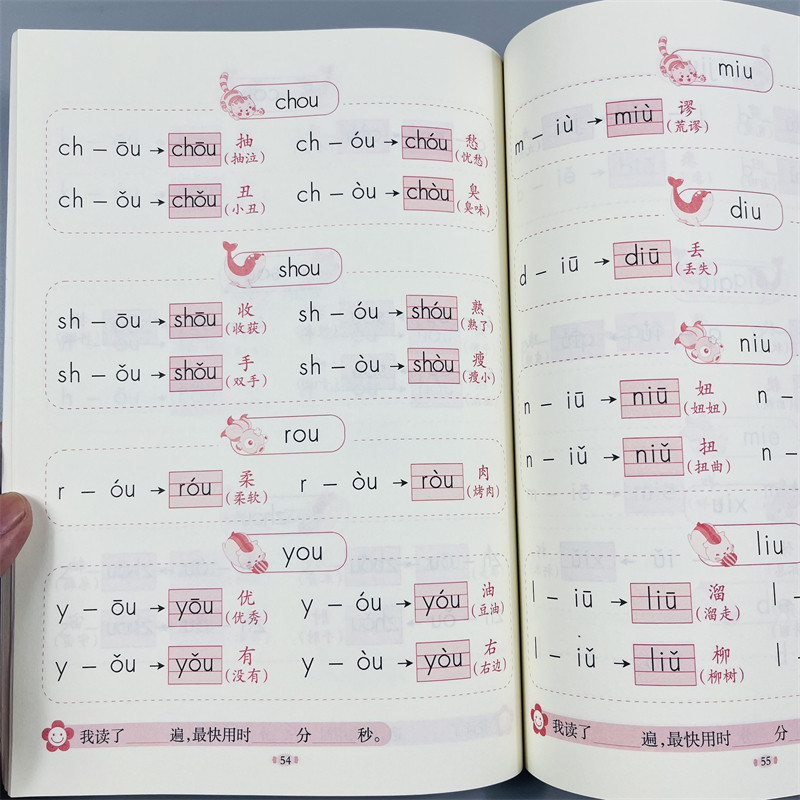 chou
ch – ōu → chōu 抽 (抽泣) ch – óu → chóu 愁 (忧愁)
ch – ǒu → chǒu 丑 (小丑) ch – òu → chòu 臭 (臭味)
shou
sh – ōu → shōu 收 (收获) sh – óu → shóu 熟 (熟了)
sh – ǒu → shǒu 手 (双手) sh – òu → shòu 瘦 (瘦小)
rou
r – óu → róu 柔 (柔软) r – òu → ròu 肉 (烤肉)
you
y – ōu → yōu 优 (优秀) y – óu → yóu 油 (豆油)
y – ǒu → yǒu 有 (没有) y – òu → yòu 右 (右边)
我读了 遍,最快用时 分 秒。
54
miu
m – iù → miù 谬 (荒谬)
diu
d – iū → diū 丢 (丢失)
niu
n – iū → niū 妞 (妞妞) n –
n – iǔ → niǔ 扭 (扭曲) n –
liu
l – iū → liū 溜 (溜走) l –
l – iǔ → liǔ 柳 (柳树) l –
我读了 遍,最快用时 分
55